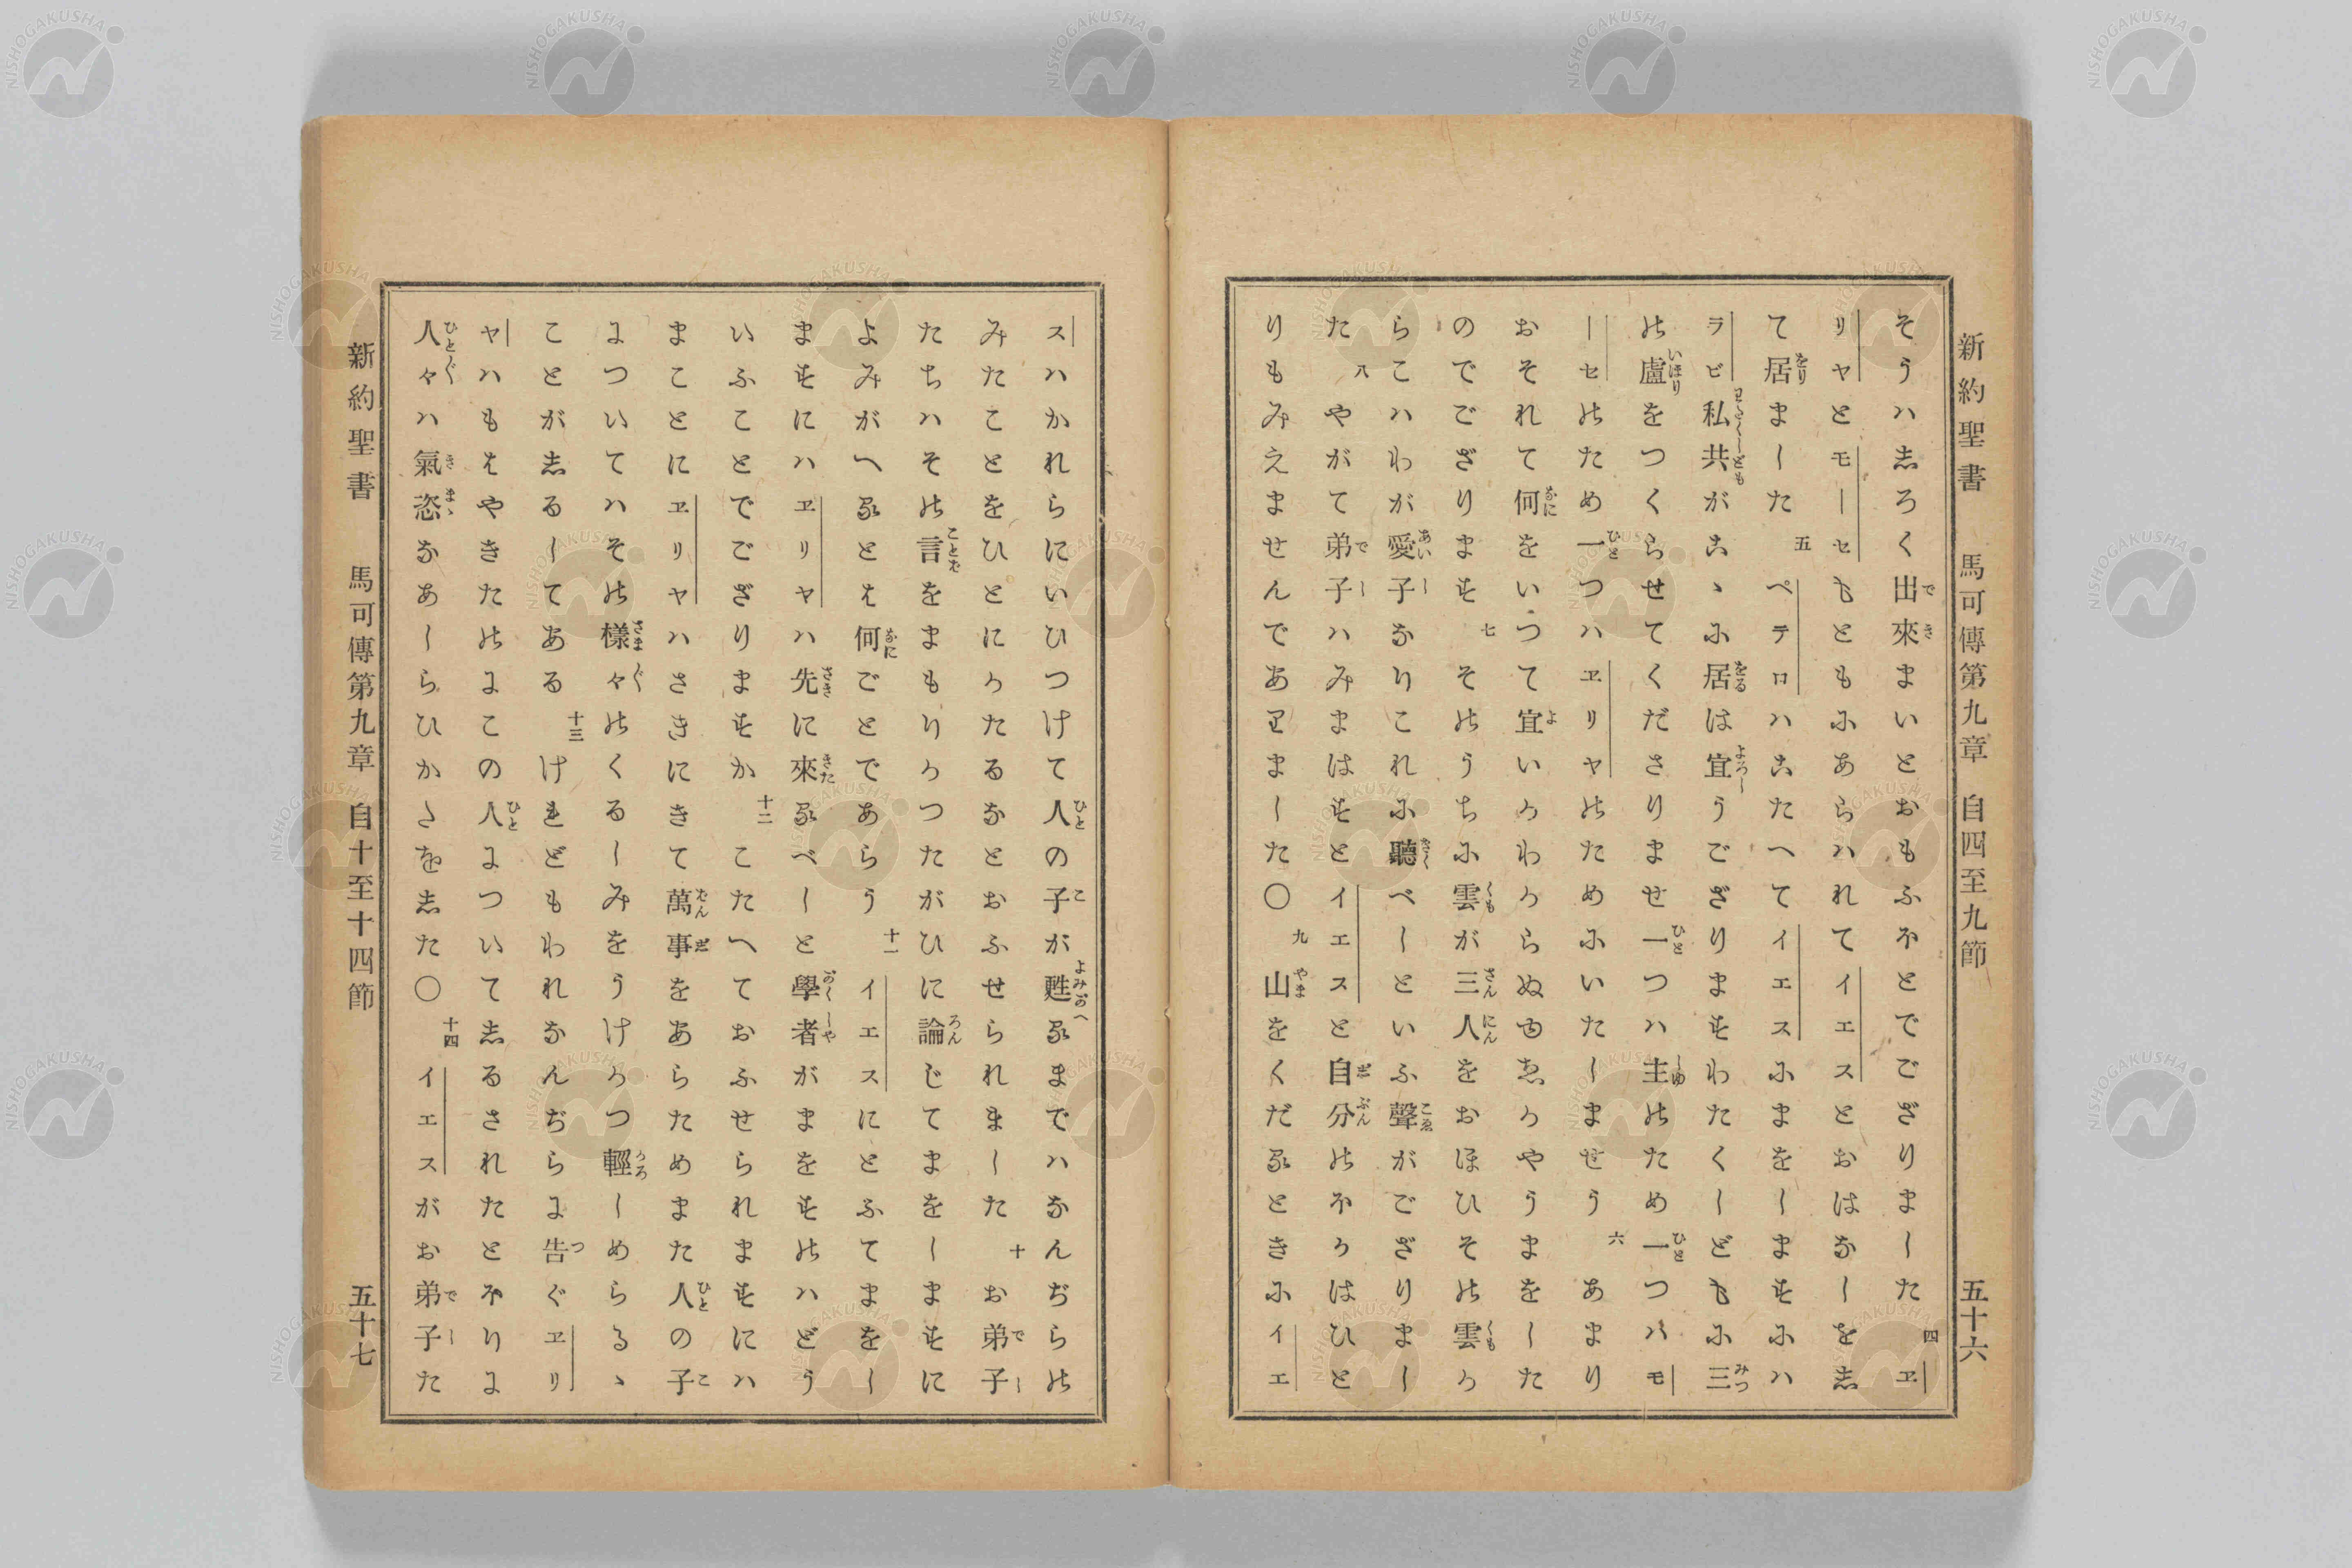 新約聖書 馬可傳第九章 自四至九節 五十六
そうハ志ろく出來まいとおもふほとでござりました 四 ヱ
リヤとモーセもともにあらハれてイエスとおはなしを志
て居ました 五 ペテロハこたへてイエスにまをしますにハ
ラビ私共がこゝに居は宜うござりますわたくしどもに三
の盧をつくらせてくださりませ一つハ主のため一つハモ
ーセのため一つハヱリヤのためにいたしませう 六 あまり
おそれて何をいつて宜いかわからぬゆゑかやうまをした
のでござります 七 そのうちに雲が三人をおほひその雲か
らこハわが愛子なりこれに聽べしといふ聲がござりまし
た 八 やがて弟子ハみまはすとイエスと自分のほかはひと
りもみえませんでありました〇 九 山をくだるときにイエ
スハかれらにいひつけて人の子が甦るまでハなんぢらの
みたことをひとにかたるなとおふせられました 十 お弟子
たちハその言をまもりかつたがひに論じてまをしますに
よみがへるとは何ごとであらう 十一 イエスにとふてまをし
ますにハヱリヤハ先に來るべしと學者がまをすのハどう
いふことでござりますか 十二 こたへておふせられますにハ
まことにヱリヤハさきにきて萬事をあらためまた人の子
についてハその樣々のくるしみをうけかつ輕しめらるゝ
ことが志るしてある 十三 けれどもわれなんぢらに告ぐヱリ
ヤハもはやきたのにこの人について志るされたとほりに
人々ハ氣恣なあしらひかたを志た〇 十四 イエスがお弟子た
新約聖書 馬可傳第九章 自十至十四節 五十七